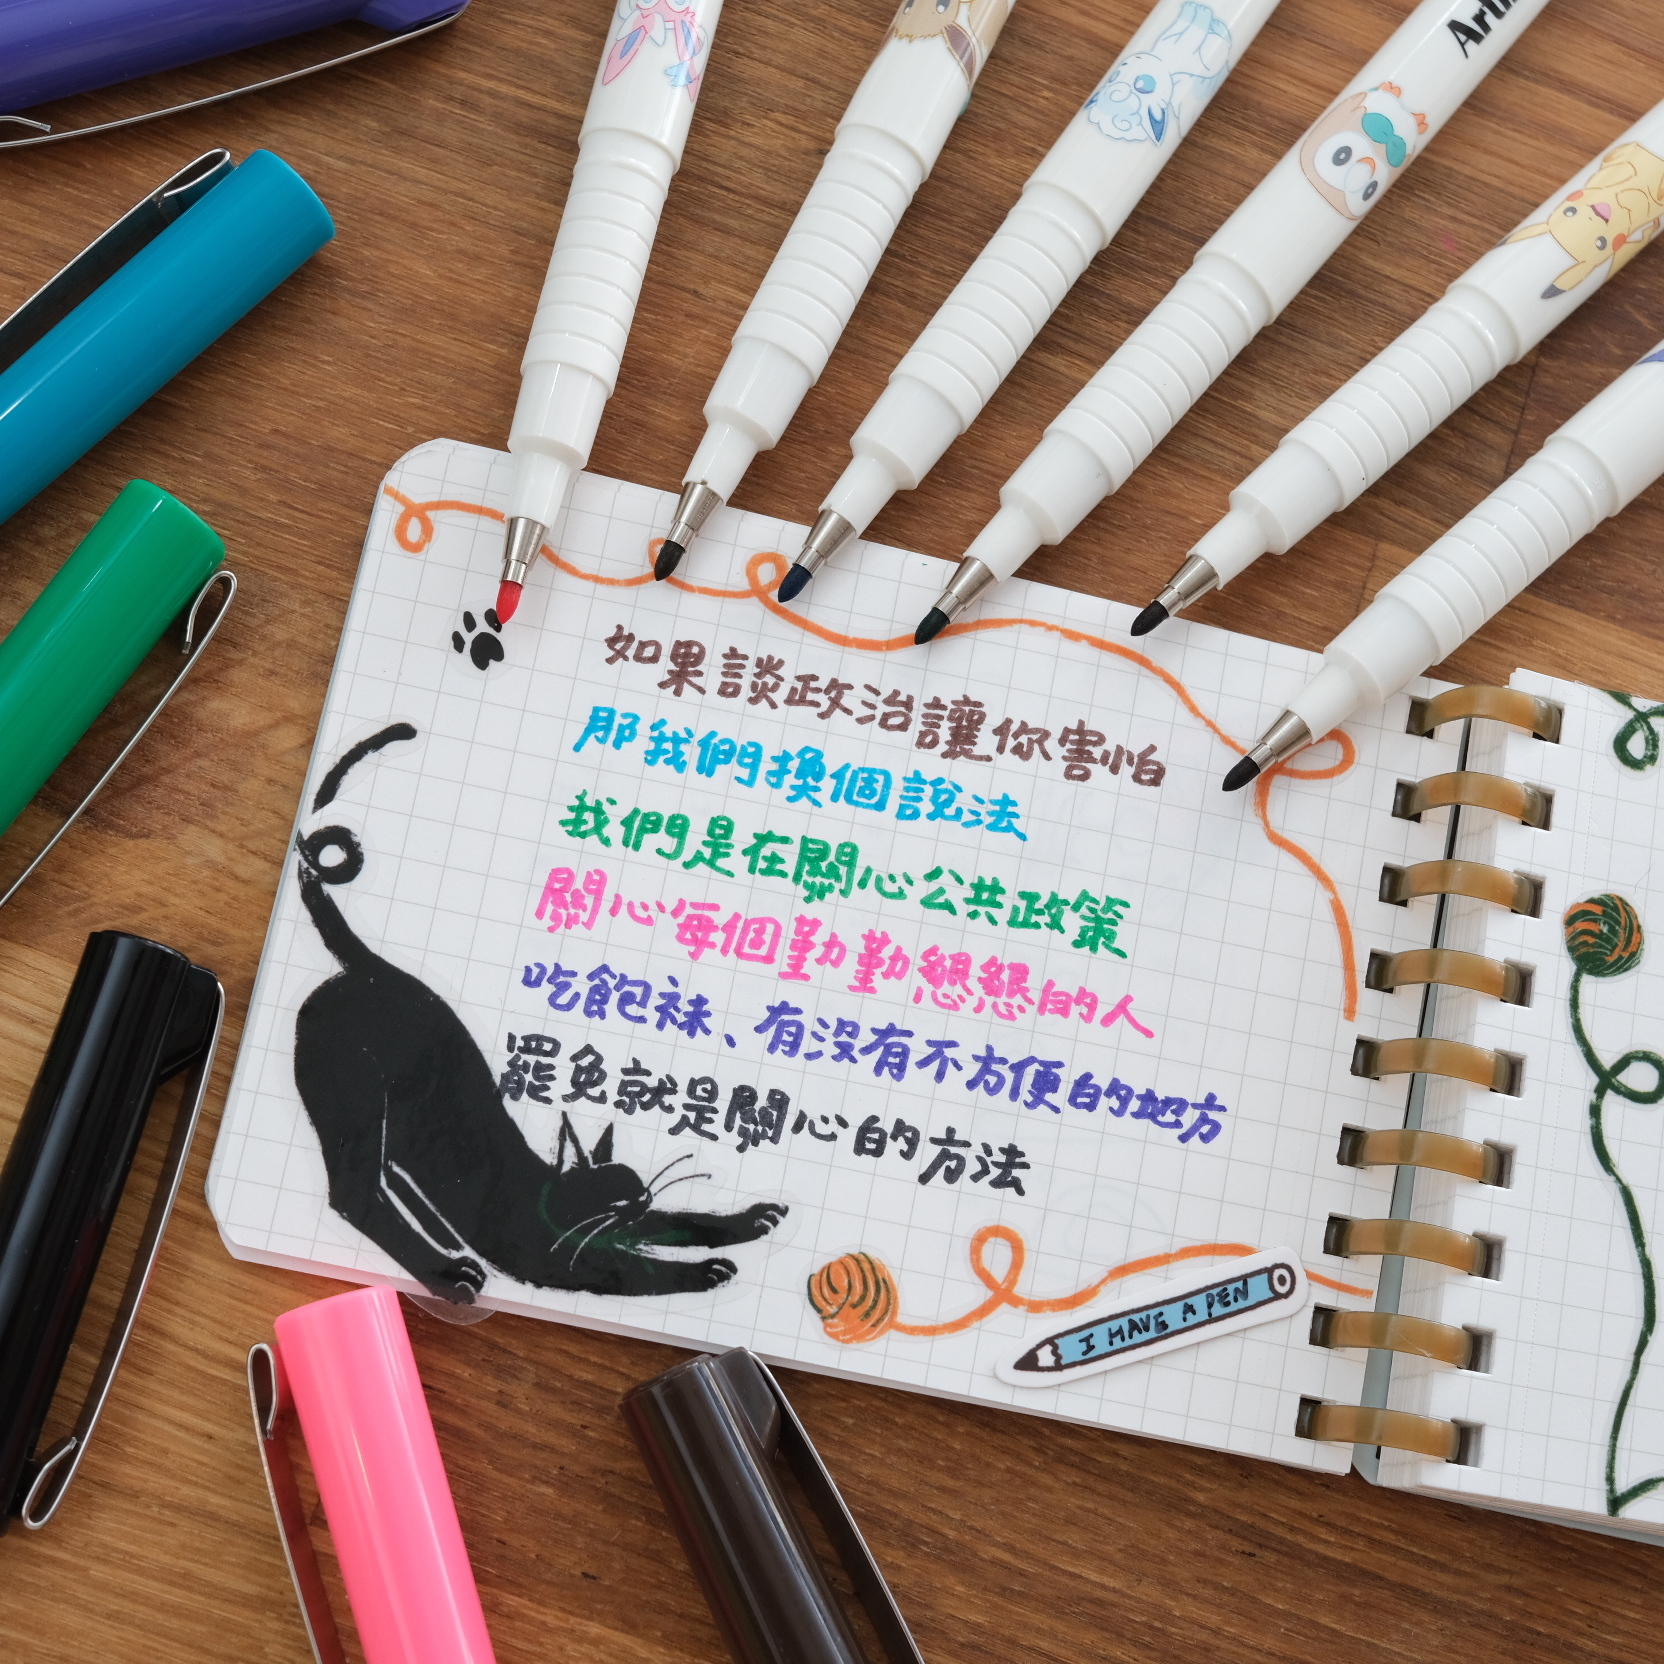 Artli
如果談政治讓你害怕
那我們換個說法
我們是在關心公共政策
關心每個勤勤懇懇的人
吃飽祙、有沒有不方便的地方
罷免就是關心的方法
I HAVE A PEN